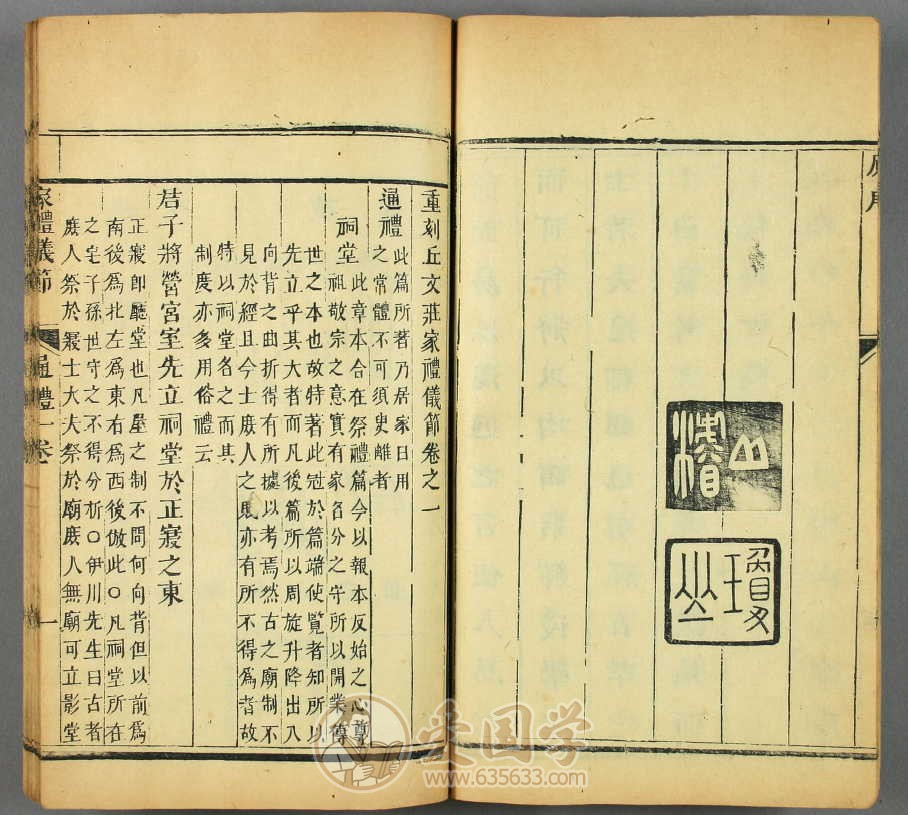 重刻丘文莊家禮儀節卷之一
通禮 此篇所著乃居家日用
之常體不可須史離者
祠堂 此章本合在祭禮篇今以報本反始之心尊
祖敬宗之意實有家名分之守所以開業傳
世之本也故特著此冠於篇端使覽者知所以
先立乎其大者而凡後篇所以周旋升降出入
向背之曲折得有所據以考焉然古之廟制不
見於經且今士庻人之賤亦有所不得爲者故
特以祠堂名之而其
制度亦多用俗禮云
君子將營宮室先立祠堂於正寢之東
正寢即廳堂也凡屋之制不問何向背但以前爲
南後爲北左爲東右爲西後倣此○凡祠堂所在
之宅子孫世守之不得分析○伊川先生曰古者
庻人祭於寢士大夫祭於廟庻人無廟可立影堂
家禮儀節 通禮一卷 一
爱国学
www.635633.com